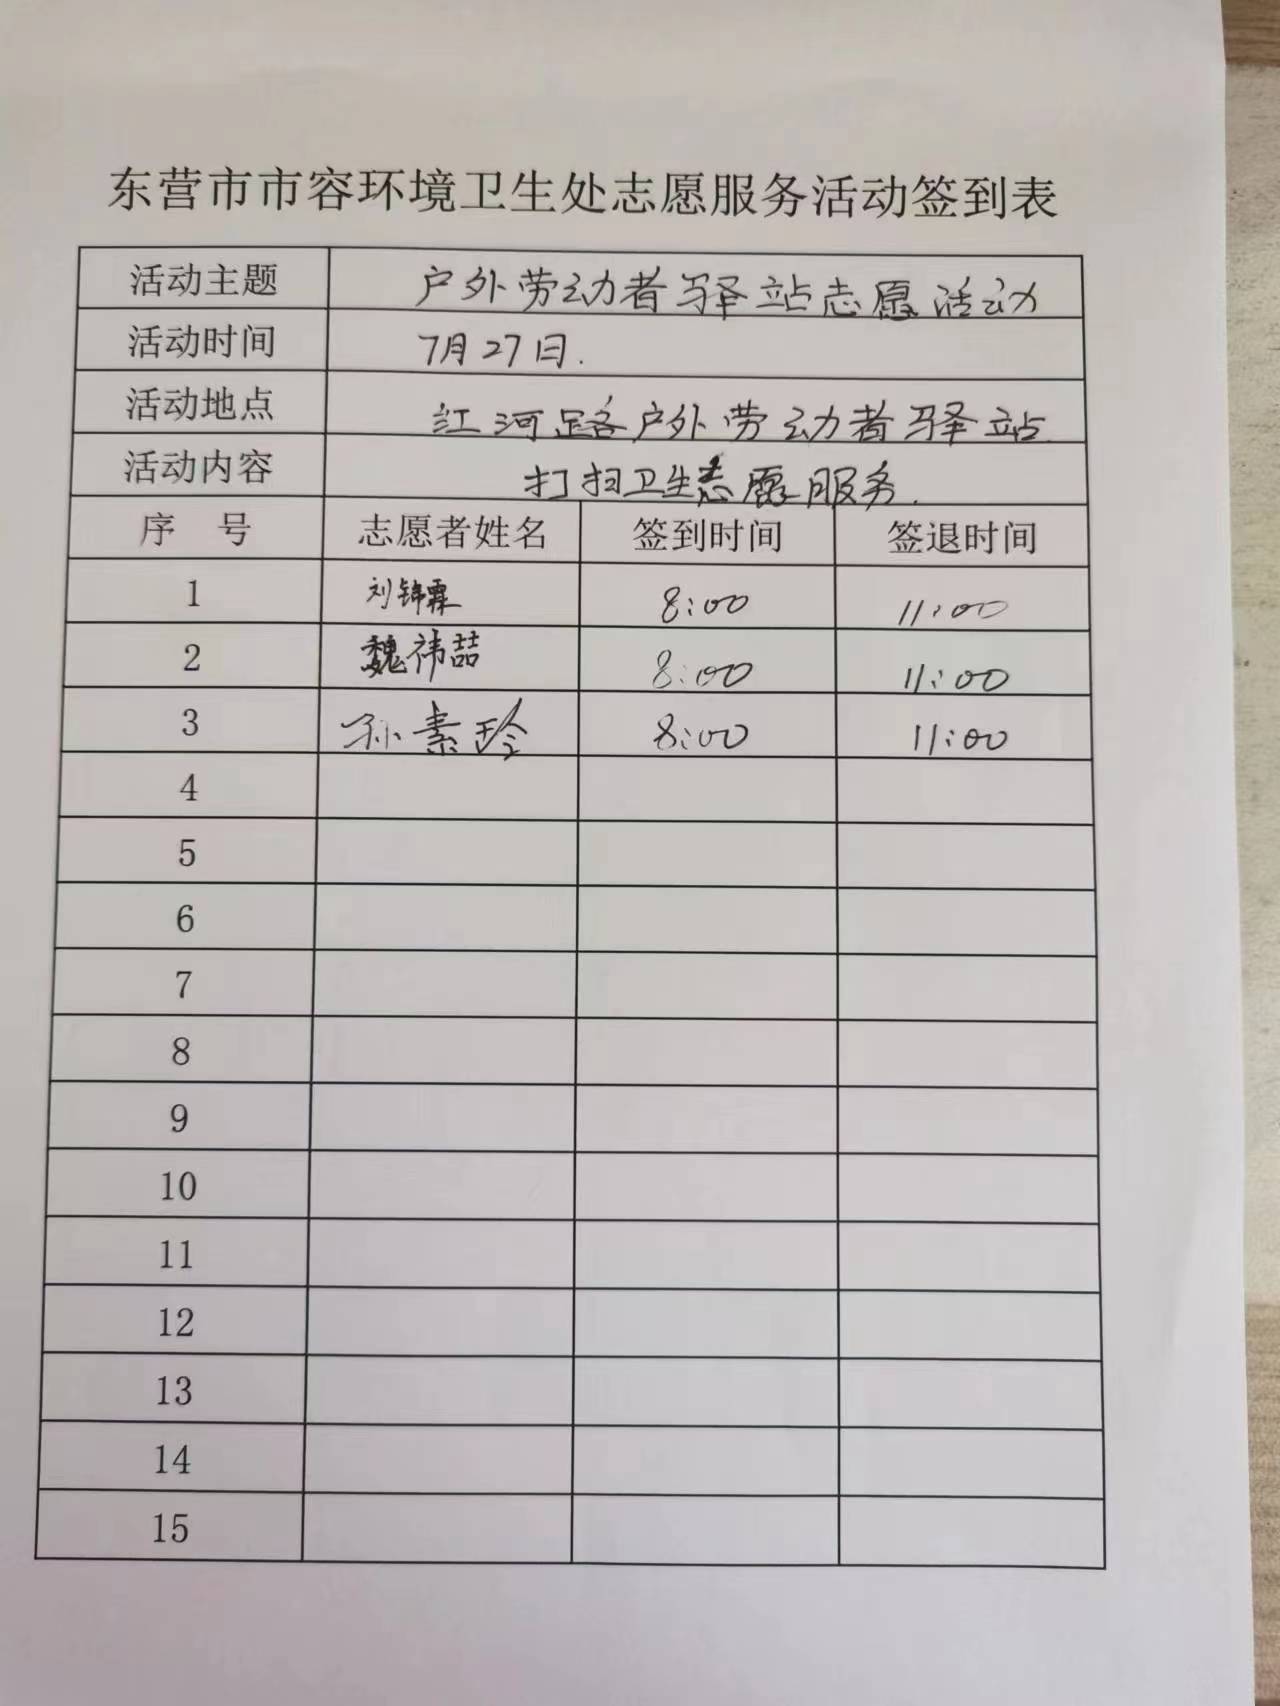 东营市市容环境卫生处志愿服务活动签到表
活动主题 户外劳动者驿站志愿活动
活动时间 7月27日.
活动地点 红河路户外劳动者驿站
活动内容 打扫卫生志愿服务.
序 号 志愿者姓名 签到时间 签退时间
1 刘锦霖 8:00 11:00
2 魏祎喆 8:00 11:00
3 孙素玲 8:00 11:00
4
5
6
7
8
9
10
11
12
13
14
15